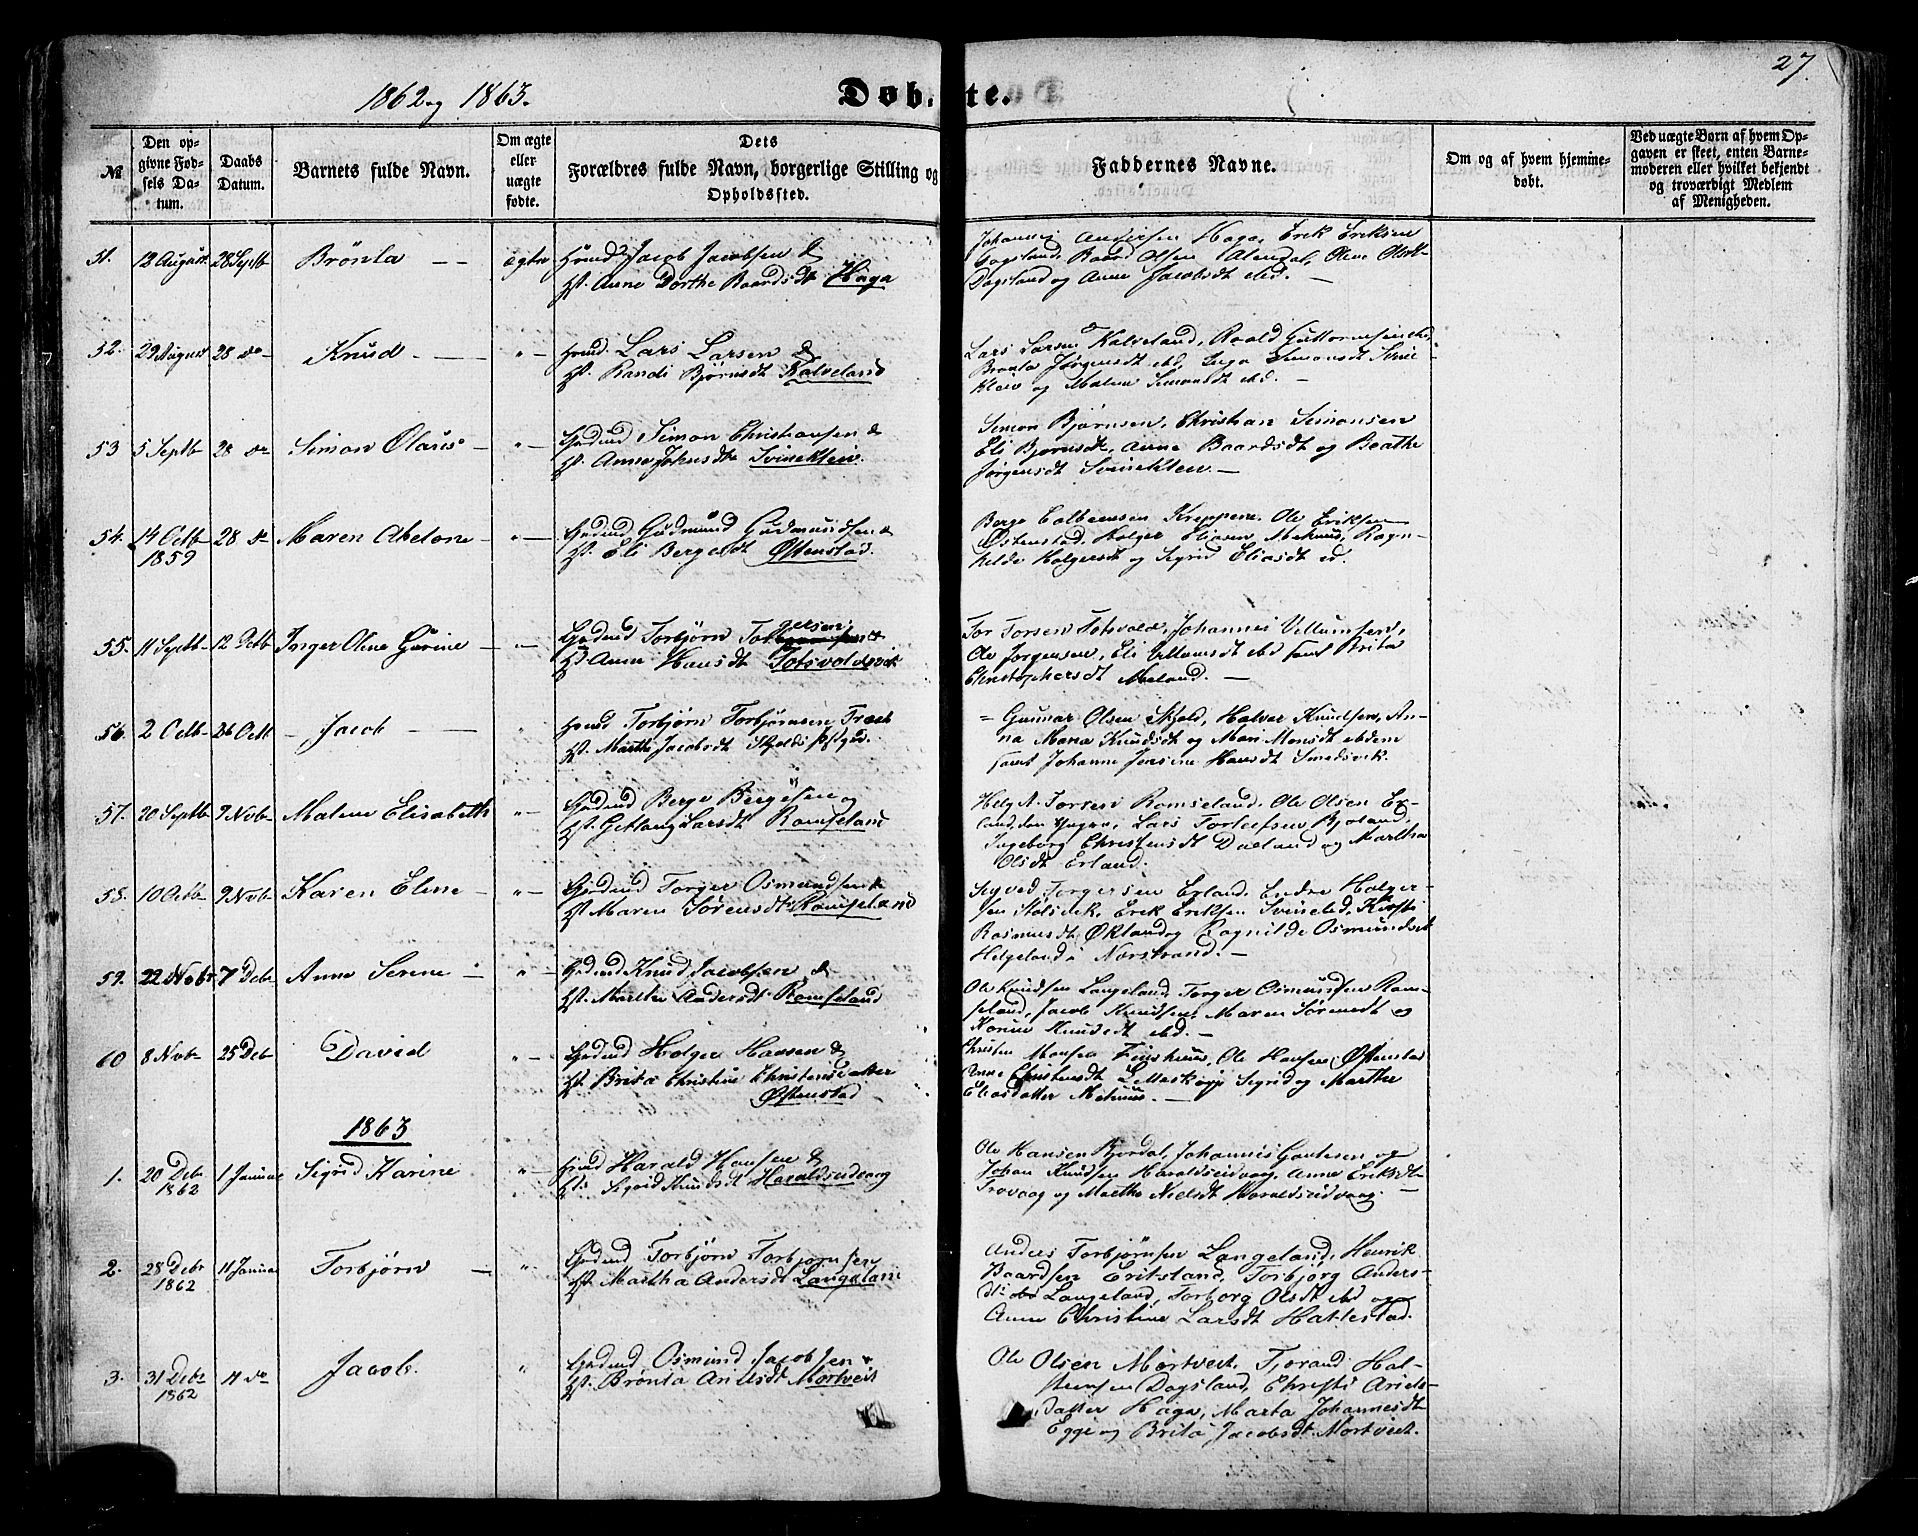 1862 og 1863.
Døbte.
27
№
Den opgivne Fødsels Datum.
Daabs Datum.
Barnets fulde Navn.
Om ægte eller uægte fødte.
Dets Forældres fulde Navn, borgerlige Stilling og Opholdssted.
Faddernes Navne.
Om og af hvem hjemmedøbt.
Ved uægte Børn af hvem Opgaven er skeet, enten Barnemoderen eller hvilket bekjendt og troværdigt Medlem af Menigheden.
51. 12 August 28 Septb Brønla ægte Jacob Jacobsen &
Anne Dorthe Baardsdt Haga
Johannes Andersen Haga, Erik Eriksen
Dagsland, Baard Olsen Olene Olsdt
Dagsland og Anne Jacobsdt ibd.
52. 29 August 28 do Knud Lars Larsen &
Randi Bjørnsdt Kalveland
Lars Larsen Kalveland, Roald Guttormsen ibd,
Brønla Jørgensdt ibd, Inga Simonsdt Svine-
kleiv og Malene Simonsdt ibd.
53 5 Septb 28 do Simon Olaus Simon Christiansen &
Anne Johnsdt Svinekleiv.
Simon Bjørnsen, Christian Simonsen
Eli Bjørnsdt, Anne Baardsdt og Beathe
Jørgensdt Svinekleiv.
54. 14 Octb 1859 28 do Maren Abelone Gudmund Gudmundsen &
Eli Bergesdt Østenstad.
Berge Kreppene, Ole Eriksen
Østenstad, Holger Eliasen Mehuus, Ragn-
hilde Holgersdt og Sigrid Eliasdt
55. 11 Septb 12 Octb Inger Olene Gurine Torbjørn Torgersen &
Anne Hansdt Totsvoldsvik
Tor Torsen Totsvold, Johannes Villumsen,
Ole Jørgensen, Eli Villumsdt ibd samt Brita
Christophersdt Mæland.
56. 2 Octb 26 Octb Jacob Torbjørn Torbjørnsen
Marthe Jacobsdt Skjolds
Gunnar Olsen Skjold, Halvor Knudsen, An-
na Maria Knudsdt og Mari Monsdt ibdm
samt Johanne Jensine Hansdt Smedsvik.
57. 20 Septb 9 Novb Malene Elisabeth Berge Bergesen og
Larsdt Ramseland
Torsen Ramseland, Ole Olsen Er-
land, den Yngre, Lars Torleifsen Bjoland,
Ingeborg Christensdt Dueland og Martha
Olsdt Erland.
58. 10 Octb 9 Novb Karen Eline Torger Osmundsen &
Maren Sørensdt Ramseland
Syved Torgersen Erland, Endre Holger-
sen Stølsvik, Erik Eriksen
Rasmusdt Økland og Ragnilde Osmundsdt
Helgeland i Norstrand.
59. 22 Novbr 7 Debr Anne Serine Knud Jacobsen &
Marthe Andersdt Ramseland
Ole Knudsen Langeland, Torger Osmundsen Ram-
seland, Jacob Knudsen, Maren Sørensdt og
Karine Knudsdt ibd.
60 8 Novb 25 Deb David Holger Hansen &
Brita Christine Christensdatter
Østenstad
Christen Monsen Ole Hansen Østenstad
Anne Christensdt Sigrid og Marthe
Eliasdatter Mehuus.
1863
1. 20 Debr 1862 1 Januar Sigrid Karine Harald Hansen &
Sigrid Knudsdt Haraldseidvaag
Ole Hansen Bjordal, Johannes Gautesen og
Johan Knudsen Haraldseidvaag, Anne Eriksdt
Trovaag og Marthe Nielsdt Haraldseidvaag.
2. 28 Debr 1862 11 Januar Torbjørn Torbjørn Torbjørnsen
Martha Andersdt Langeland
Anders Torbjørnsen Langeland, Henrik
Baardsen Eritsland, Torbjørg Anders-
dt Langeland, Torborg Olsdt ibd og
Anne Christine Larsdt Hattestad.
3. 31 Debr 1862 11 do Jacob. Osmund Jacobsen &
Brønla Mortveit
Ole Olsen Mortveit, Tjerand Hal-
steinsen Dagsland, Christi
datter Haga, Marta Johannesdt
Egge og Brita Jacobsdt Mortveit.